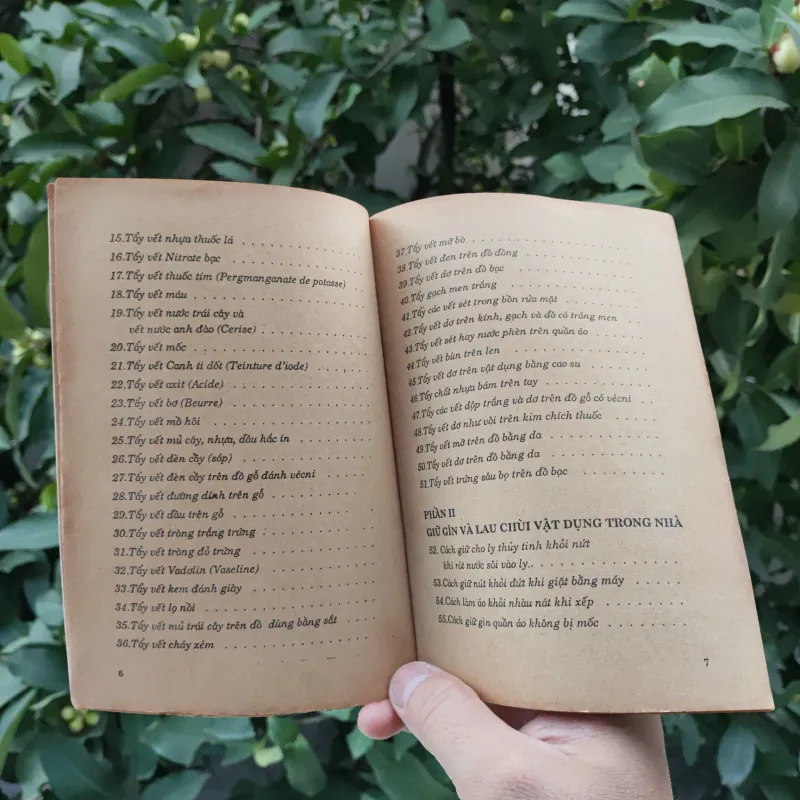 15.Tẩy vết nhựa thuốc lá . . . . . . . . . . . . . . .
16.Tẩy vết Nitrate bạc . . . . . . . . . . . . . . . .
17.Tẩy vết thuốc tím (Pergmanganate de potasse)
18.Tẩy vết máu . . . . . . . . . . . . . . . . . . . .
19.Tẩy vết nước trái cây và
vết nước anh đào (Cerise) . . . . . . . . . . . . .
20.Tẩy vết mốc . . . . . . . . . . . . . . . . . . . .
21.Tẩy vết Canh ti dốt (Teinture d'iode) . . . . . . .
22.Tẩy vết axit (Acide) . . . . . . . . . . . . . . . .
23.Tẩy vết bơ (Beurre) . . . . . . . . . . . . . . . .
24.Tẩy vết mồ hôi . . . . . . . . . . . . . . . . . . .
25.Tẩy vết mủ cây, nhựa, dầu hắc ín . . . . . . . .
26.Tẩy vết đèn cầy (sáp) . . . . . . . . . . . . . . .
27.Tẩy vết đèn cầy trên đồ gỗ đánh vécni . . . . .
28.Tẩy vết đường dính trên gỗ . . . . . . . . . . .
29.Tẩy vết dầu trên gỗ . . . . . . . . . . . . . . . .
30.Tẩy vết tròng trắng trứng . . . . . . . . . . . .
31.Tẩy vết tròng đỏ trứng . . . . . . . . . . . . . .
32.Tẩy vết Vadơlin (Vaseline) . . . . . . . . . . . .
33.Tẩy vết kem đánh giầy . . . . . . . . . . . . . .
34.Tẩy vết lọ nồi . . . . . . . . . . . . . . . . . . .
35.Tẩy vết mủ trái cây trên đồ dùng bằng sắt . . . .
36.Tẩy vết cháy xém . . . . . . . . . . . . . . . . .
6
37.Tẩy vết mỡ bò . . . . . . . . . . . . . . . . . .
38.Tẩy vết đen trên đồ đồng . . . . . . . . . . . .
39.Tẩy vết dơ trên đồ bạc . . . . . . . . . . . . .
40.Tẩy gạch men trắng . . . . . . . . . . . . . . .
41.Tẩy các vết sét trong bồn rửa mặt . . . . . . .
42.Tẩy vết dơ trên kính, gạch và đồ có tráng men . .
43.Tẩy vết sét hay nước phèn trên quần áo . . . . .
44.Tẩy vết bùn trên len . . . . . . . . . . . . . . .
45.Tẩy vết dơ trên vật dụng bằng cao su . . . . . .
46.Tẩy chất nhựa bám trên tay . . . . . . . . . . .
47.Tẩy các vết dộp trắng và dơ trên đồ gỗ có vécni . .
48.Tẩy vết dơ như vôi trên kim chích thuốc . . . .
49.Tẩy vết mỡ trên đồ bằng da . . . . . . . . . . .
50.Tẩy vết dơ trên đồ bằng da . . . . . . . . . . .
51.Tẩy vết trứng sâu bọ trên đồ bạc . . . . . . . .
PHẦN II
GIỮ GÌN VÀ LAU CHÙI VẬT DỤNG TRONG NHÀ
52. Cách giữ cho ly thủy tinh khỏi nứt
khi rót nước sôi vào ly.. . . . . . . . . . . . . . .
53.Cách giữ nút khỏi đứt khi giặt bằng máy . . . . .
54.Cách làm áo khỏi nhàu nát khi xếp . . . . . . . .
55.Cách giữ gìn quần áo không bị mốc . . . . . . . .
7